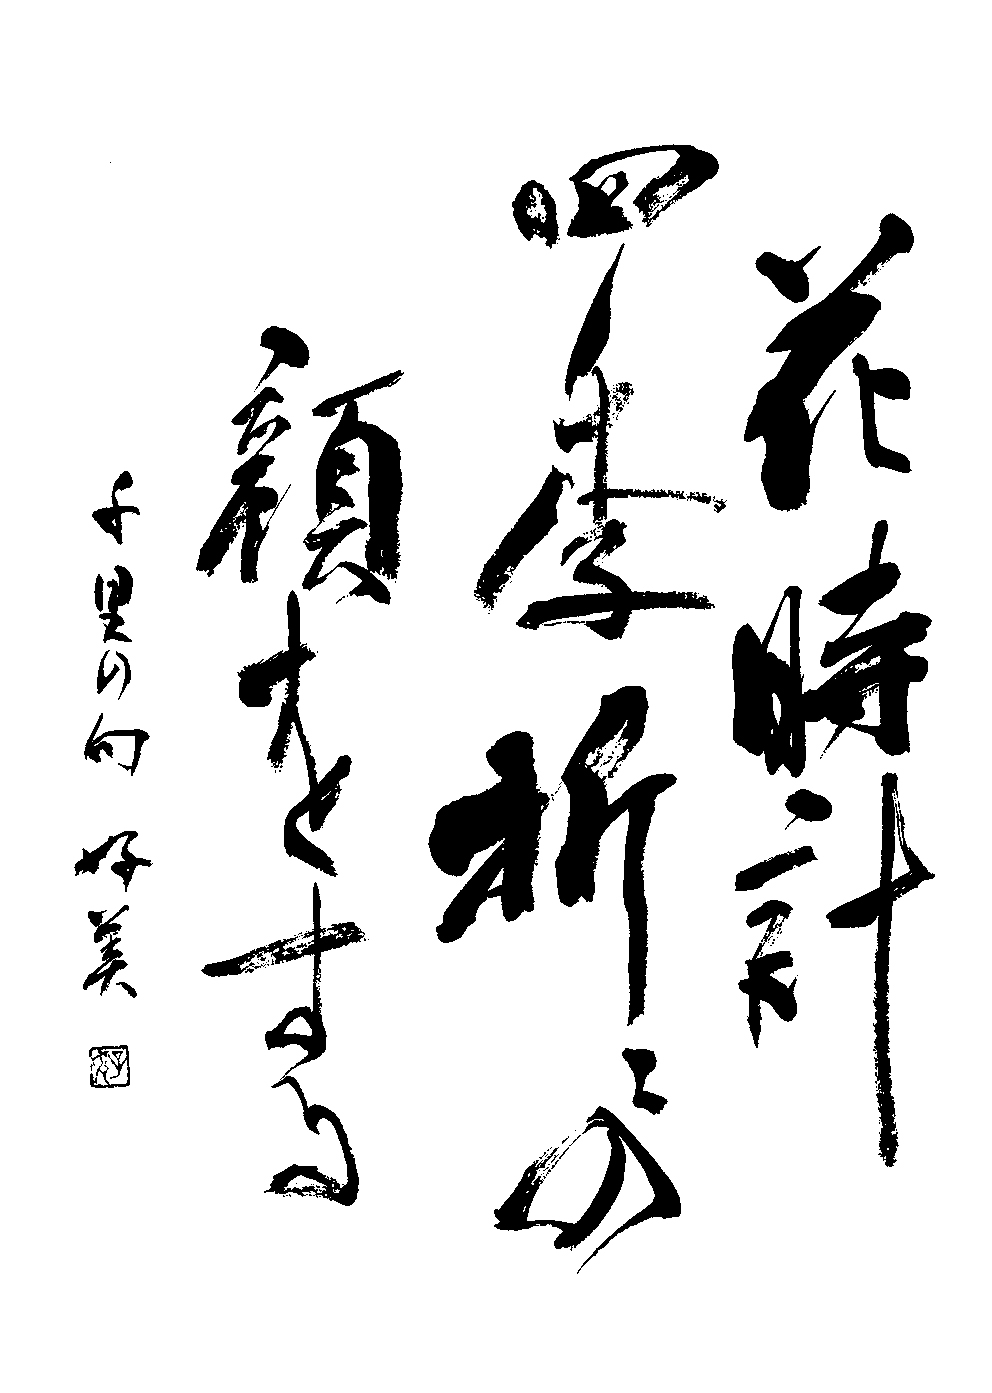 花時計
四季折々の
顔をする
千里の句 好美